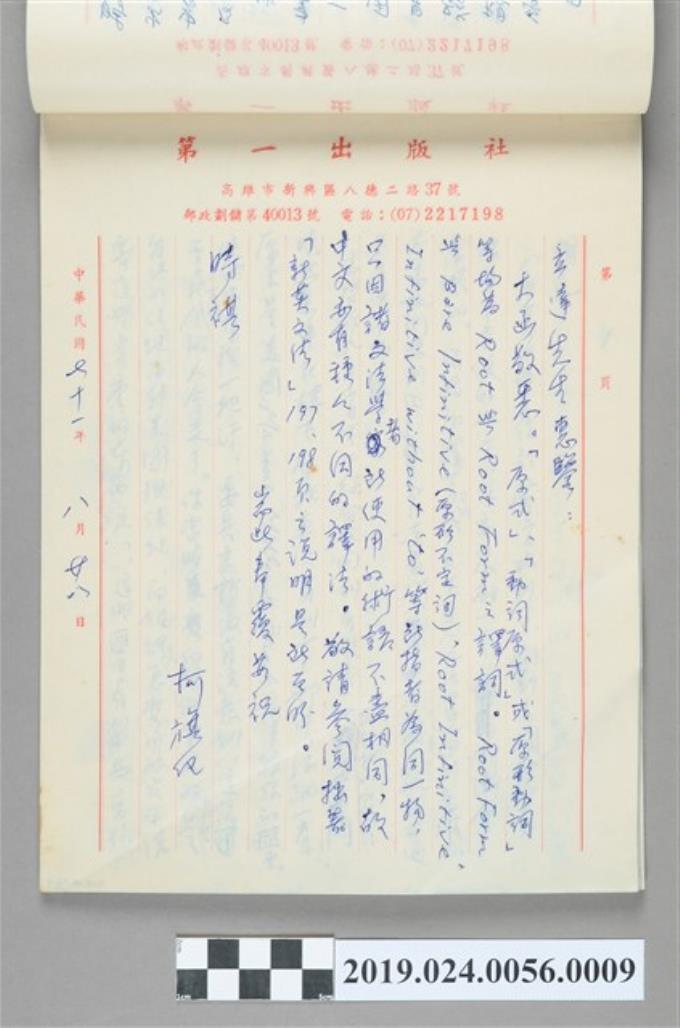 郵政劃儲第40013號 電話:(07)2217198
第一出版社
高雄市新興區八德二路37號
郵政劃儲第40013號 電話:(07)2217198
第 頁
立達先生惠鑒:
大函敬悉。「原式」、「動詞原式」或「原形動詞」
等均為 Root 與 Root Form 之譯詞。Root Form
與 Bare Infinitive (原形不定詞)、Root Infinitive、
Infinitive without 'to' 等所指者為同一物,
只因諸文法學者所使用的術語不盡相同,故
中文亦有種種不同的譯法。敬請參閱拙著
「新英文法」197、198頁之說明是所至盼。
耑此奉覆並祝
時祺
柯旗化
中華民國七十一年 八月 廿八日
2019.024.0056.0009